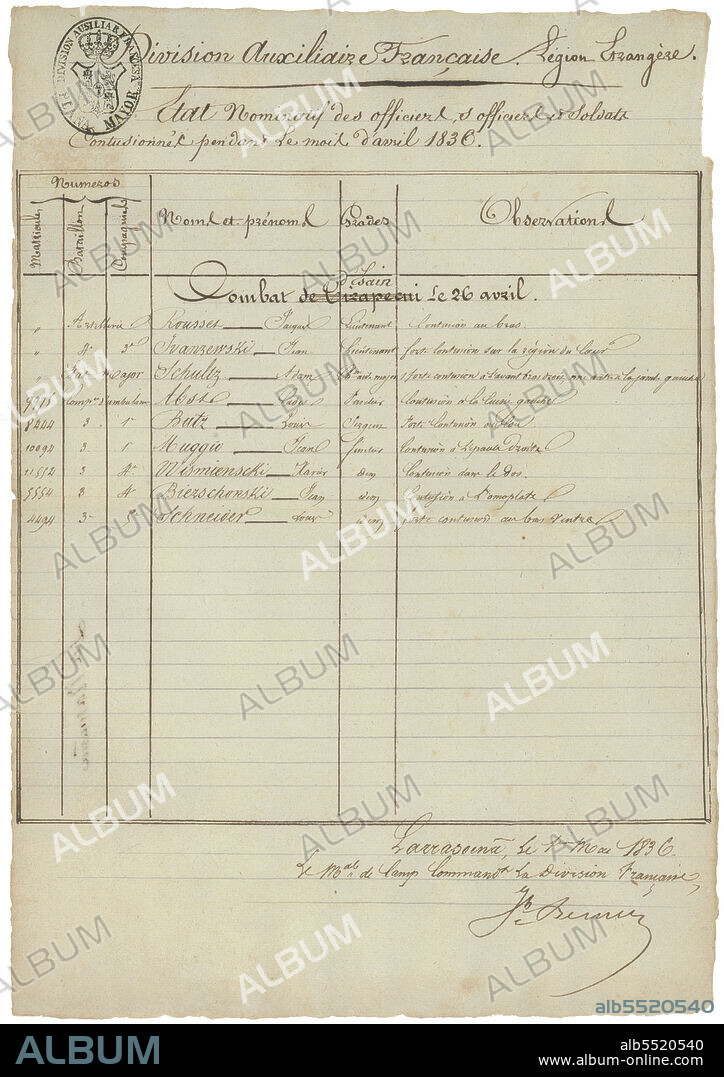 DIVISION AUSILIAR FRANCESA
PLANA MAYOR
Division Auxiliaire Française. Légion Etrangère.
Etat Nominatif des officiers, s officiers et Soldats
Contusionnés pendant le mois d'avril 1836.
Numeros
Matricule Bataillon Compagnies Noms et prénoms Grades Observations
d'Isain
Combat de Tirapegui le 26 avril.
" Artillerie Rousset Jacques Lieutenant Contusion au bras
" 4e 3e Ivanzewski Jean Lieutenant forte contusion sur la région du Cœur
" Major Schultz Adam major forte contusion à l'avant bras droit, une autre à la jambe gauche
Comp. d'ambulance Contusion à la cuisse gauche
8444 3. 1e Butz Louis Sergent forte contusion
10094 3 1e Muggii Jean fusilier Contusion à l'épaule droite
11552 3 4e Wismienscki Xavier idem Contusion dans le dos.
5554 3 4e Bierschonski Jean idem Contusion à l'omoplate
4494 3e Schneider Louis idem forte contusion au bas Ventre
Larrasoina, le 1er Mai 1836.
Le Mal de Camp Commandt la Division Française,
Jh Bernelle
ALBUM
alb5520540
ALBUM
alb5520540
www.album-online.com